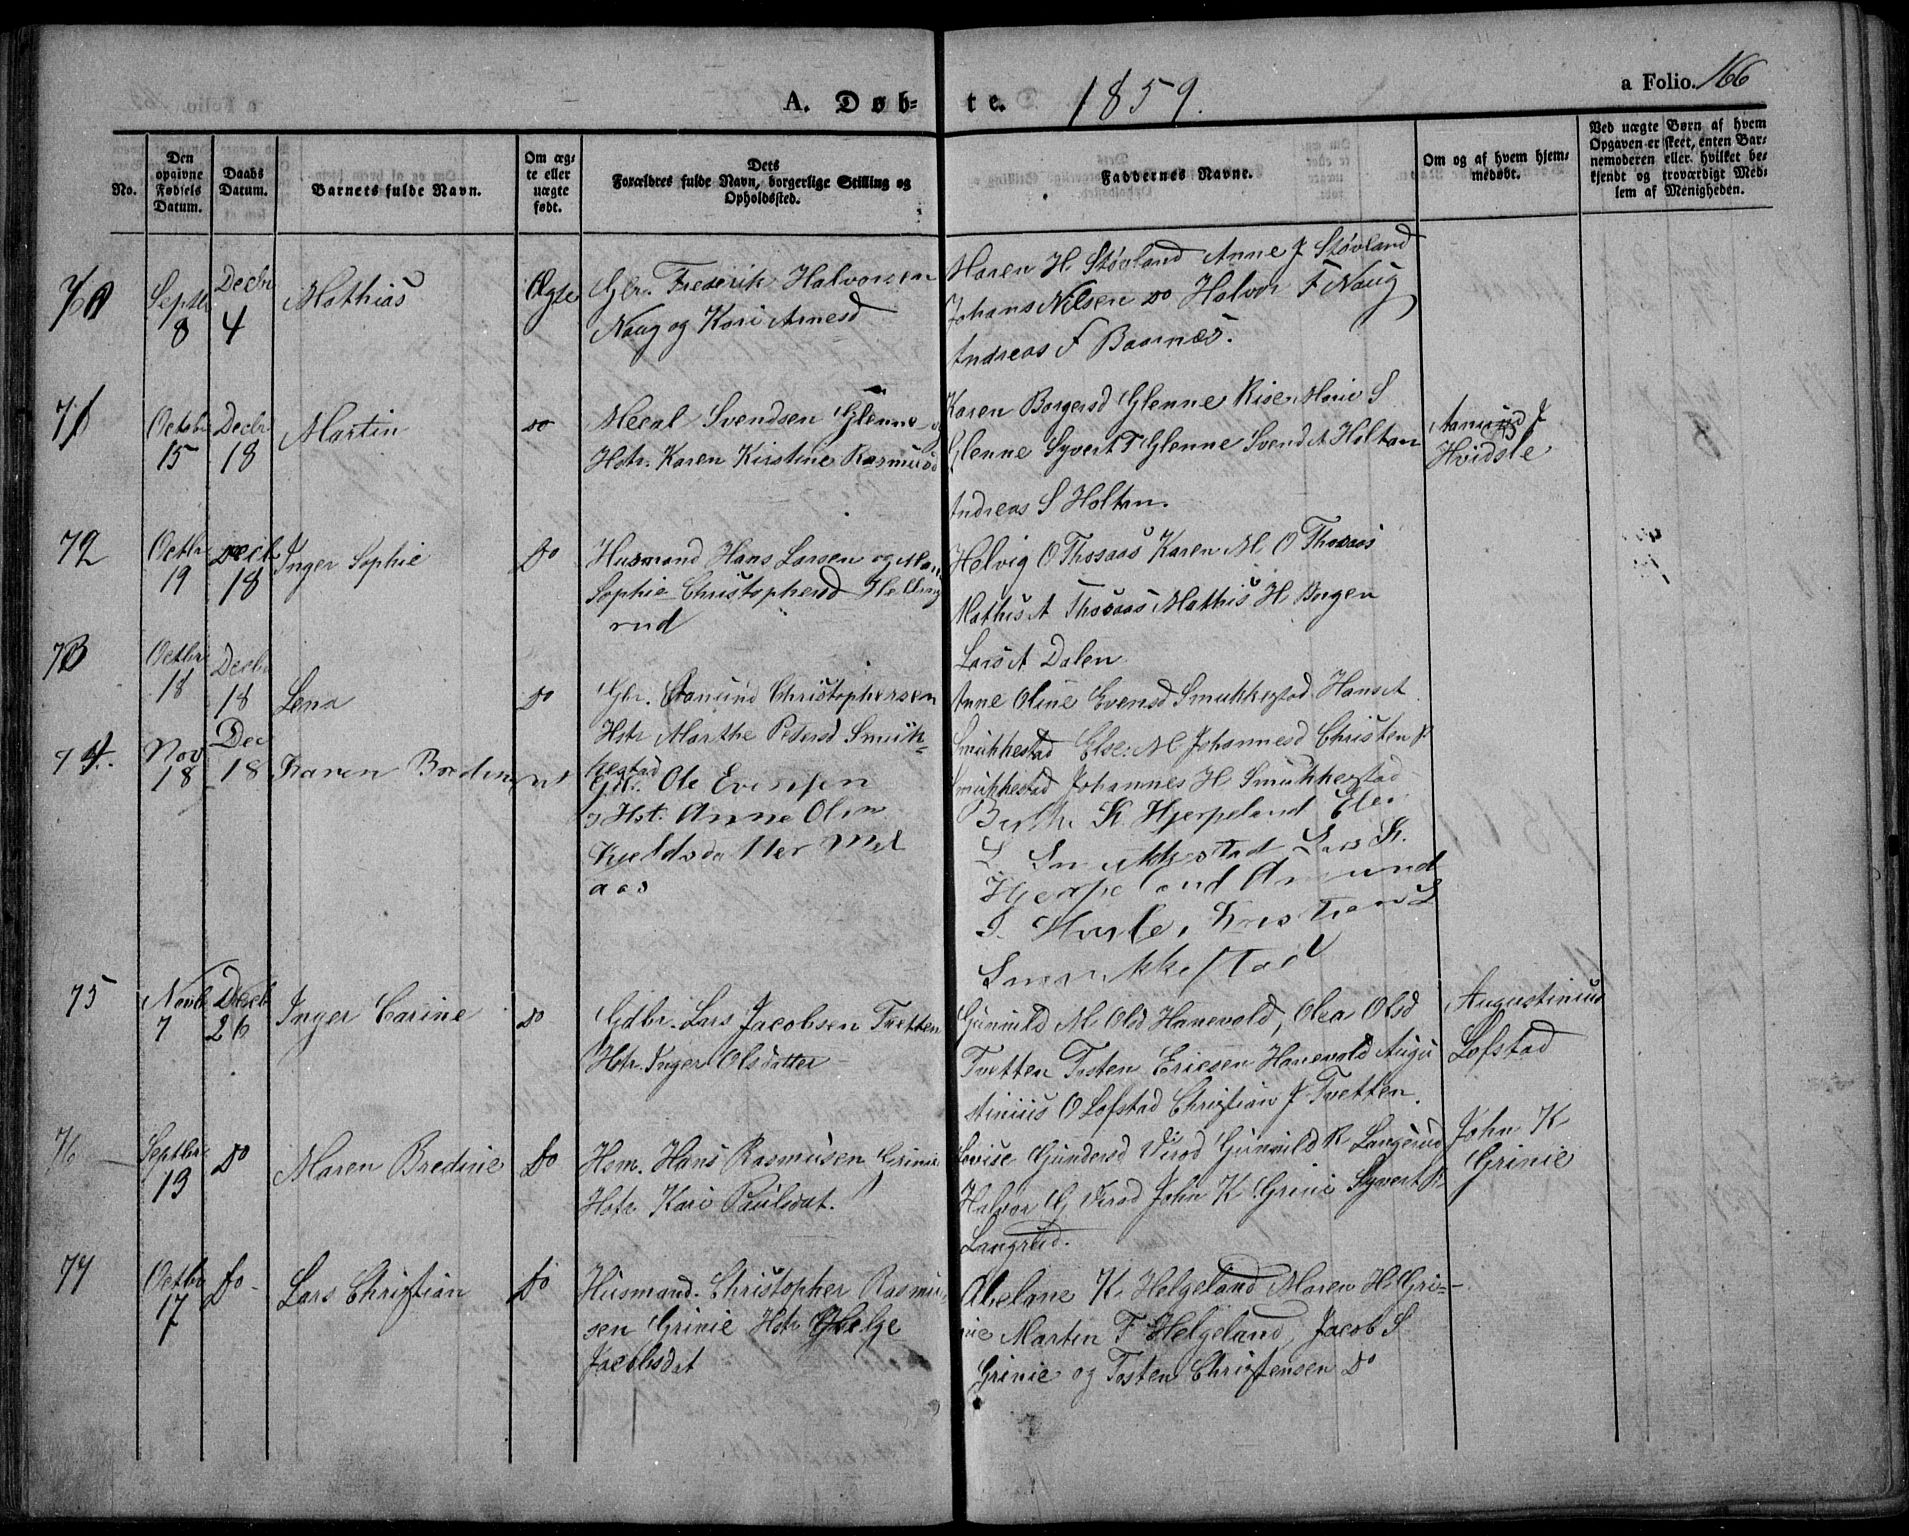 A. Døb- te. 1859. a Folio. 166
No.
Den opgivne Fødsels Datum.
Daabs Datum.
Barnets fulde Navn.
Om ægte eller uægte født.
Dets Forældres fulde Navn, borgerlige Stilling og Opholdssted.
Faddernes Navne.
Om og af hvem hjemmedøbt.
Ved uægte Børn af hvem Opgaven er skeet, enten Barnemoderen eller hvilket bekjendt og troværdigt Medlem af Menigheden.
70 Septbr 8 Decbr 4 Mathias Ægte Gbr. Frederik Halvorsen
Naug og Kari Arnesd
Maren H Støvland Anne J Støvland
Johans Nilsen do Halvor F Naug
Andreas F Baarnæs.
71 Octobr 15 Decbr 18 Martin do Svendsen Glenne og
Hstr. Karen Kirstine Rasmusd
Karen Borgersd Glenne Risen Marie S
Glenne Syvert T Glenne Svend A Holtan
Andreas S Holtan.
Aanund J
Hvidsle
72 Octbr 19 Decb 18 Inger Sophie Do Husmand Hans Larsen og
Sophie Christophersd Helling
rud
Helvig O Thosaas Karen M. O Thosaas
Mathis A Thosaas Mathis H Borgen
Lars A Dalen
73 Octbr 18 Decbr 18 Lena Do Gbr. Aanund Christophersen
Hstr Marthe Pedersd Smuk-
kestad
Anne Oline Evensd Smukkestad Hans A
Smukkestad Else M Johannesd Christen P
Smukkestad Johannes H Smukkestad
74. Nov 18 Dec 18 Karen Ole Evensen
Hst. Anne Olea
Kjeldsdatter Mel
aas
Berthe K. Hjerpeland
L. Smukkestad Lars K.
Hjerpeland Amund
Kristian L
Smukkestad
75 Novb 7 Decb 26 Inger Carine Do Gdbr. Lars Jacobsen Tvetten
Hstr. Inger Olsdatter
Gunnild M Olsd Hanevold, Olea Olsd
Tvetten Tosten Ericsen Hanevold Augu
stinius O Lofstad Christian J Tvetten.
Augustinius
Lofstad
76 Septbr 19 Do Maren Bredine Do Hsm. Hans Rasmusen Grinie
Hstr Kari Paulsdat.
Lovise Gundersd Virod Gunnild R Langerud
Halvor G Virod John K Grinie Syvert R
Langrud.
John K
Grinie
77 Octbr 17 Do Lars Christian Do Husmand. Christopher Rasmu-
sen Grinie Hstr Helge
Jacobsdat
Abelone K Helgeland Maren H Gri-
nie Martin F Helgeland, Jacob S
Grinie og Tosten Christensen Do